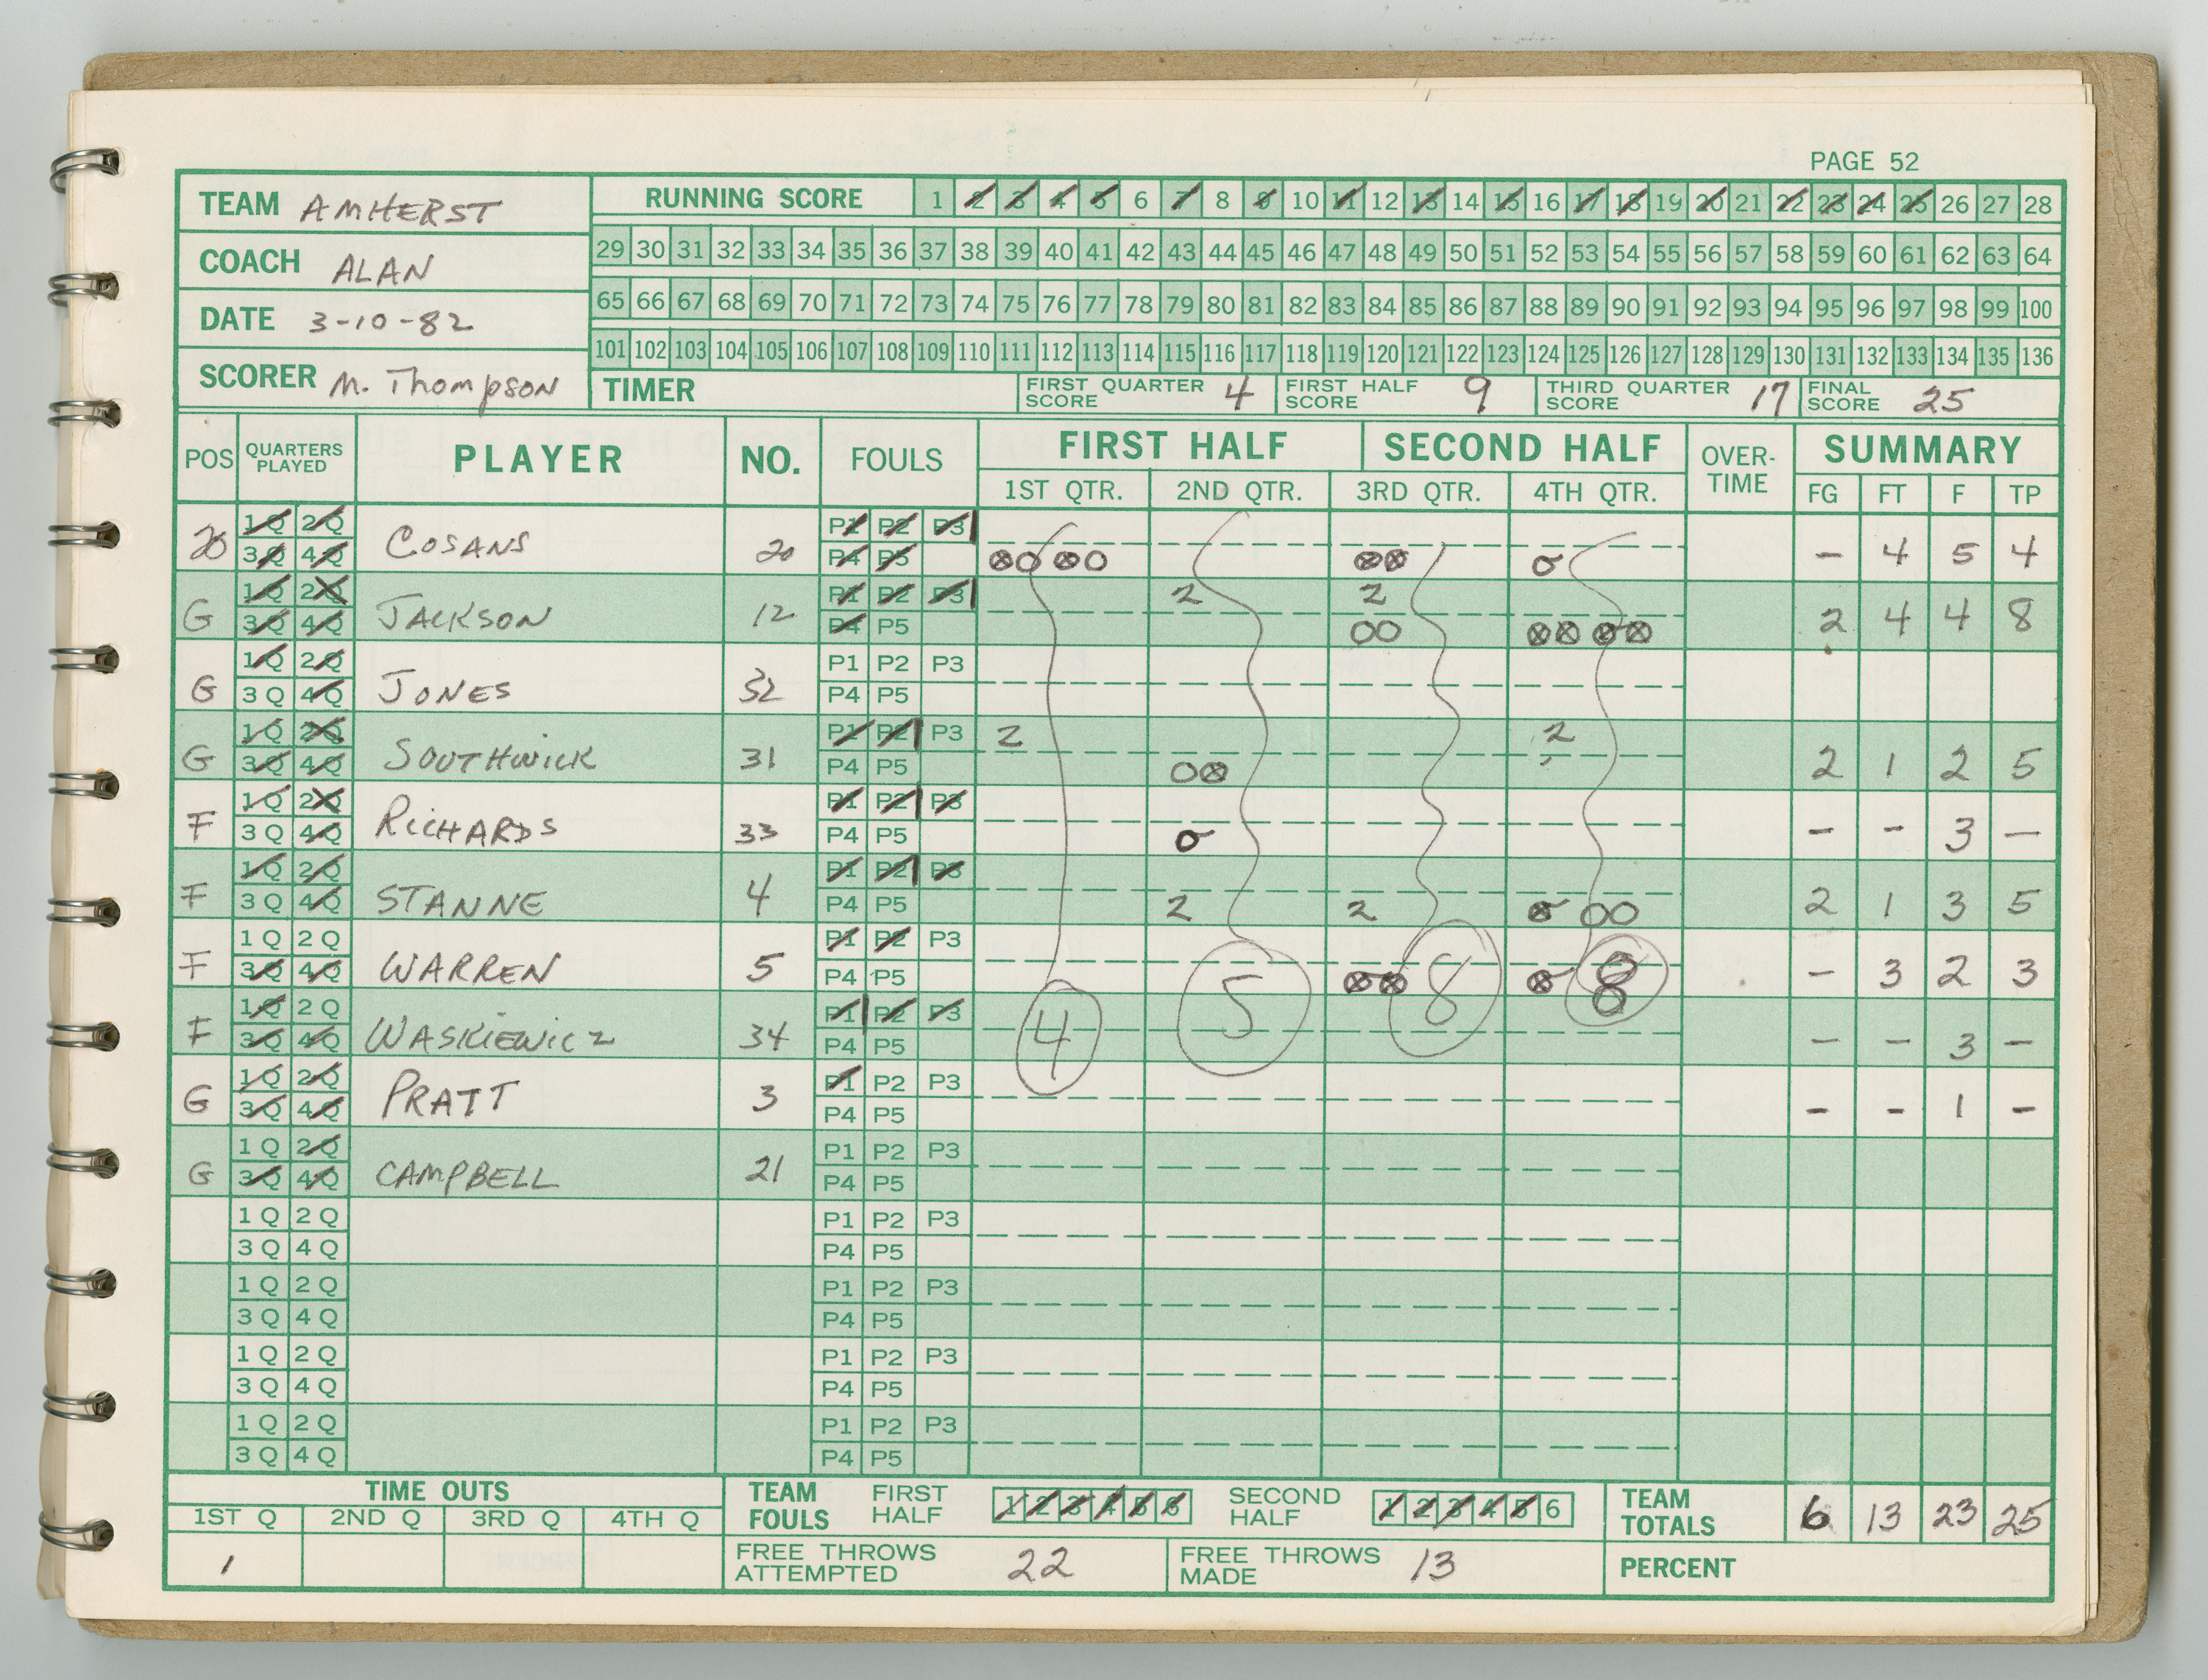 PAGE 52
TEAM AMHERST
COACH ALAN
DATE 3-10-82
SCORER M. Thompson
RUNNING SCORE 1 2 3 4 5 6 7 8 9 10 11 12 13 14 15 16 17 18 19 20 21 22 23 24 25 26 27 28
29 30 31 32 33 34 35 36 37 38 39 40 41 42 43 44 45 46 47 48 49 50 51 52 53 54 55 56 57 58 59 60 61 62 63 64
65 66 67 68 69 70 71 72 73 74 75 76 77 78 79 80 81 82 83 84 85 86 87 88 89 90 91 92 93 94 95 96 97 98 99 100
101 102 103 104 105 106 107 108 109 110 111 112 113 114 115 116 117 118 119 120 121 122 123 124 125 126 127 128 129 130 131 132 133 134 135 136
TIMER FIRST QUARTER SCORE 4 FIRST HALF SCORE 9 THIRD QUARTER SCORE 17 FINAL SCORE 25
POS QUARTERS PLAYED PLAYER NO. FOULS FIRST HALF SECOND HALF OVER-TIME SUMMARY
1ST QTR. 2ND QTR. 3RD QTR. 4TH QTR. FG FT F TP
1Q 2Q P1 P2 P3
20 3Q 4Q COSANS 20 P4 P5 - 4 5 4
1Q 2Q P1 P2 P3 2 2
G 3Q 4Q JACKSON 12 P4 P5 2 4 4 8
1Q 2Q P1 P2 P3
G 3Q 4Q JONES 32 P4 P5
1Q 2Q P1 P2 P3 2 2
G 3Q 4Q SOUTHWICK 31 P4 P5 2 1 2 5
1Q 2Q P1 P2 P3
F 3Q 4Q RICHARDS 33 P4 P5 - - 3 -
1Q 2Q P1 P2 P3
F 3Q 4Q STANNE 4 P4 P5 2 2 2 1 3 5
1Q 2Q P1 P2 P3
F 3Q 4Q WARREN 5 P4 P5 5 8 8 - 3 2 3
1Q 2Q P1 P2 P3
F 3Q 4Q WASKIEWICZ 34 P4 P5 4 - - 3 -
1Q 2Q P1 P2 P3
G 3Q 4Q PRATT 3 P4 P5 - - 1 -
1Q 2Q P1 P2 P3
G 3Q 4Q CAMPBELL 21 P4 P5
1Q 2Q P1 P2 P3
3Q 4Q P4 P5
1Q 2Q P1 P2 P3
3Q 4Q P4 P5
1Q 2Q P1 P2 P3
3Q 4Q P4 P5
1Q 2Q P1 P2 P3
3Q 4Q P4 P5
TIME OUTS
1ST Q 2ND Q 3RD Q 4TH Q
1
TEAM FOULS FIRST HALF 1 2 3 4 5 6 SECOND HALF 1 2 3 4 5 6
TEAM TOTALS 6 13 23 25
FREE THROWS ATTEMPTED 22 FREE THROWS MADE 13 PERCENT